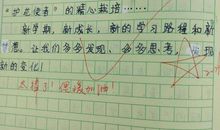 "护花使者"的精心栽培……
新学期，新成长，新的学习路程和新
梦想，让我们多多发现、多多思考，发现
新的变化！
太棒了！继续加油！